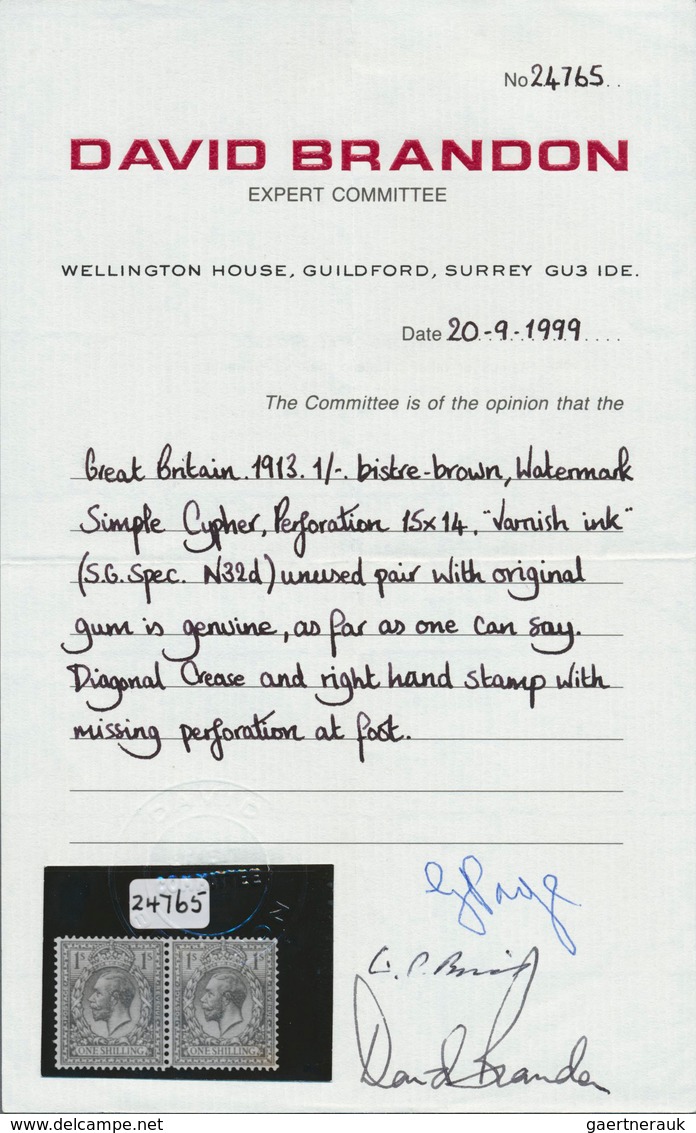 No 24765
DAVID BRANDON
EXPERT COMMITTEE
WELLINGTON HOUSE, GUILDFORD, SURREY GU3 1DE.
Date 20-9-1999
The Committee is of the opinion that the
Great Britain. 1913. 1/-. bistre-brown, Watermark
Simple Cypher, Perforation 15x14, "Varnish ink"
(S.G. Spec. N32d) unused pair with original
gum is genuine, as far as one can say.
Diagonal Crease and right hand stamp with
missing perforation at foot.
DAVID
24765
1S 1S 1S 1S
ONE SHILLING ONE SHILLING
David Brandon
gaertnerauk